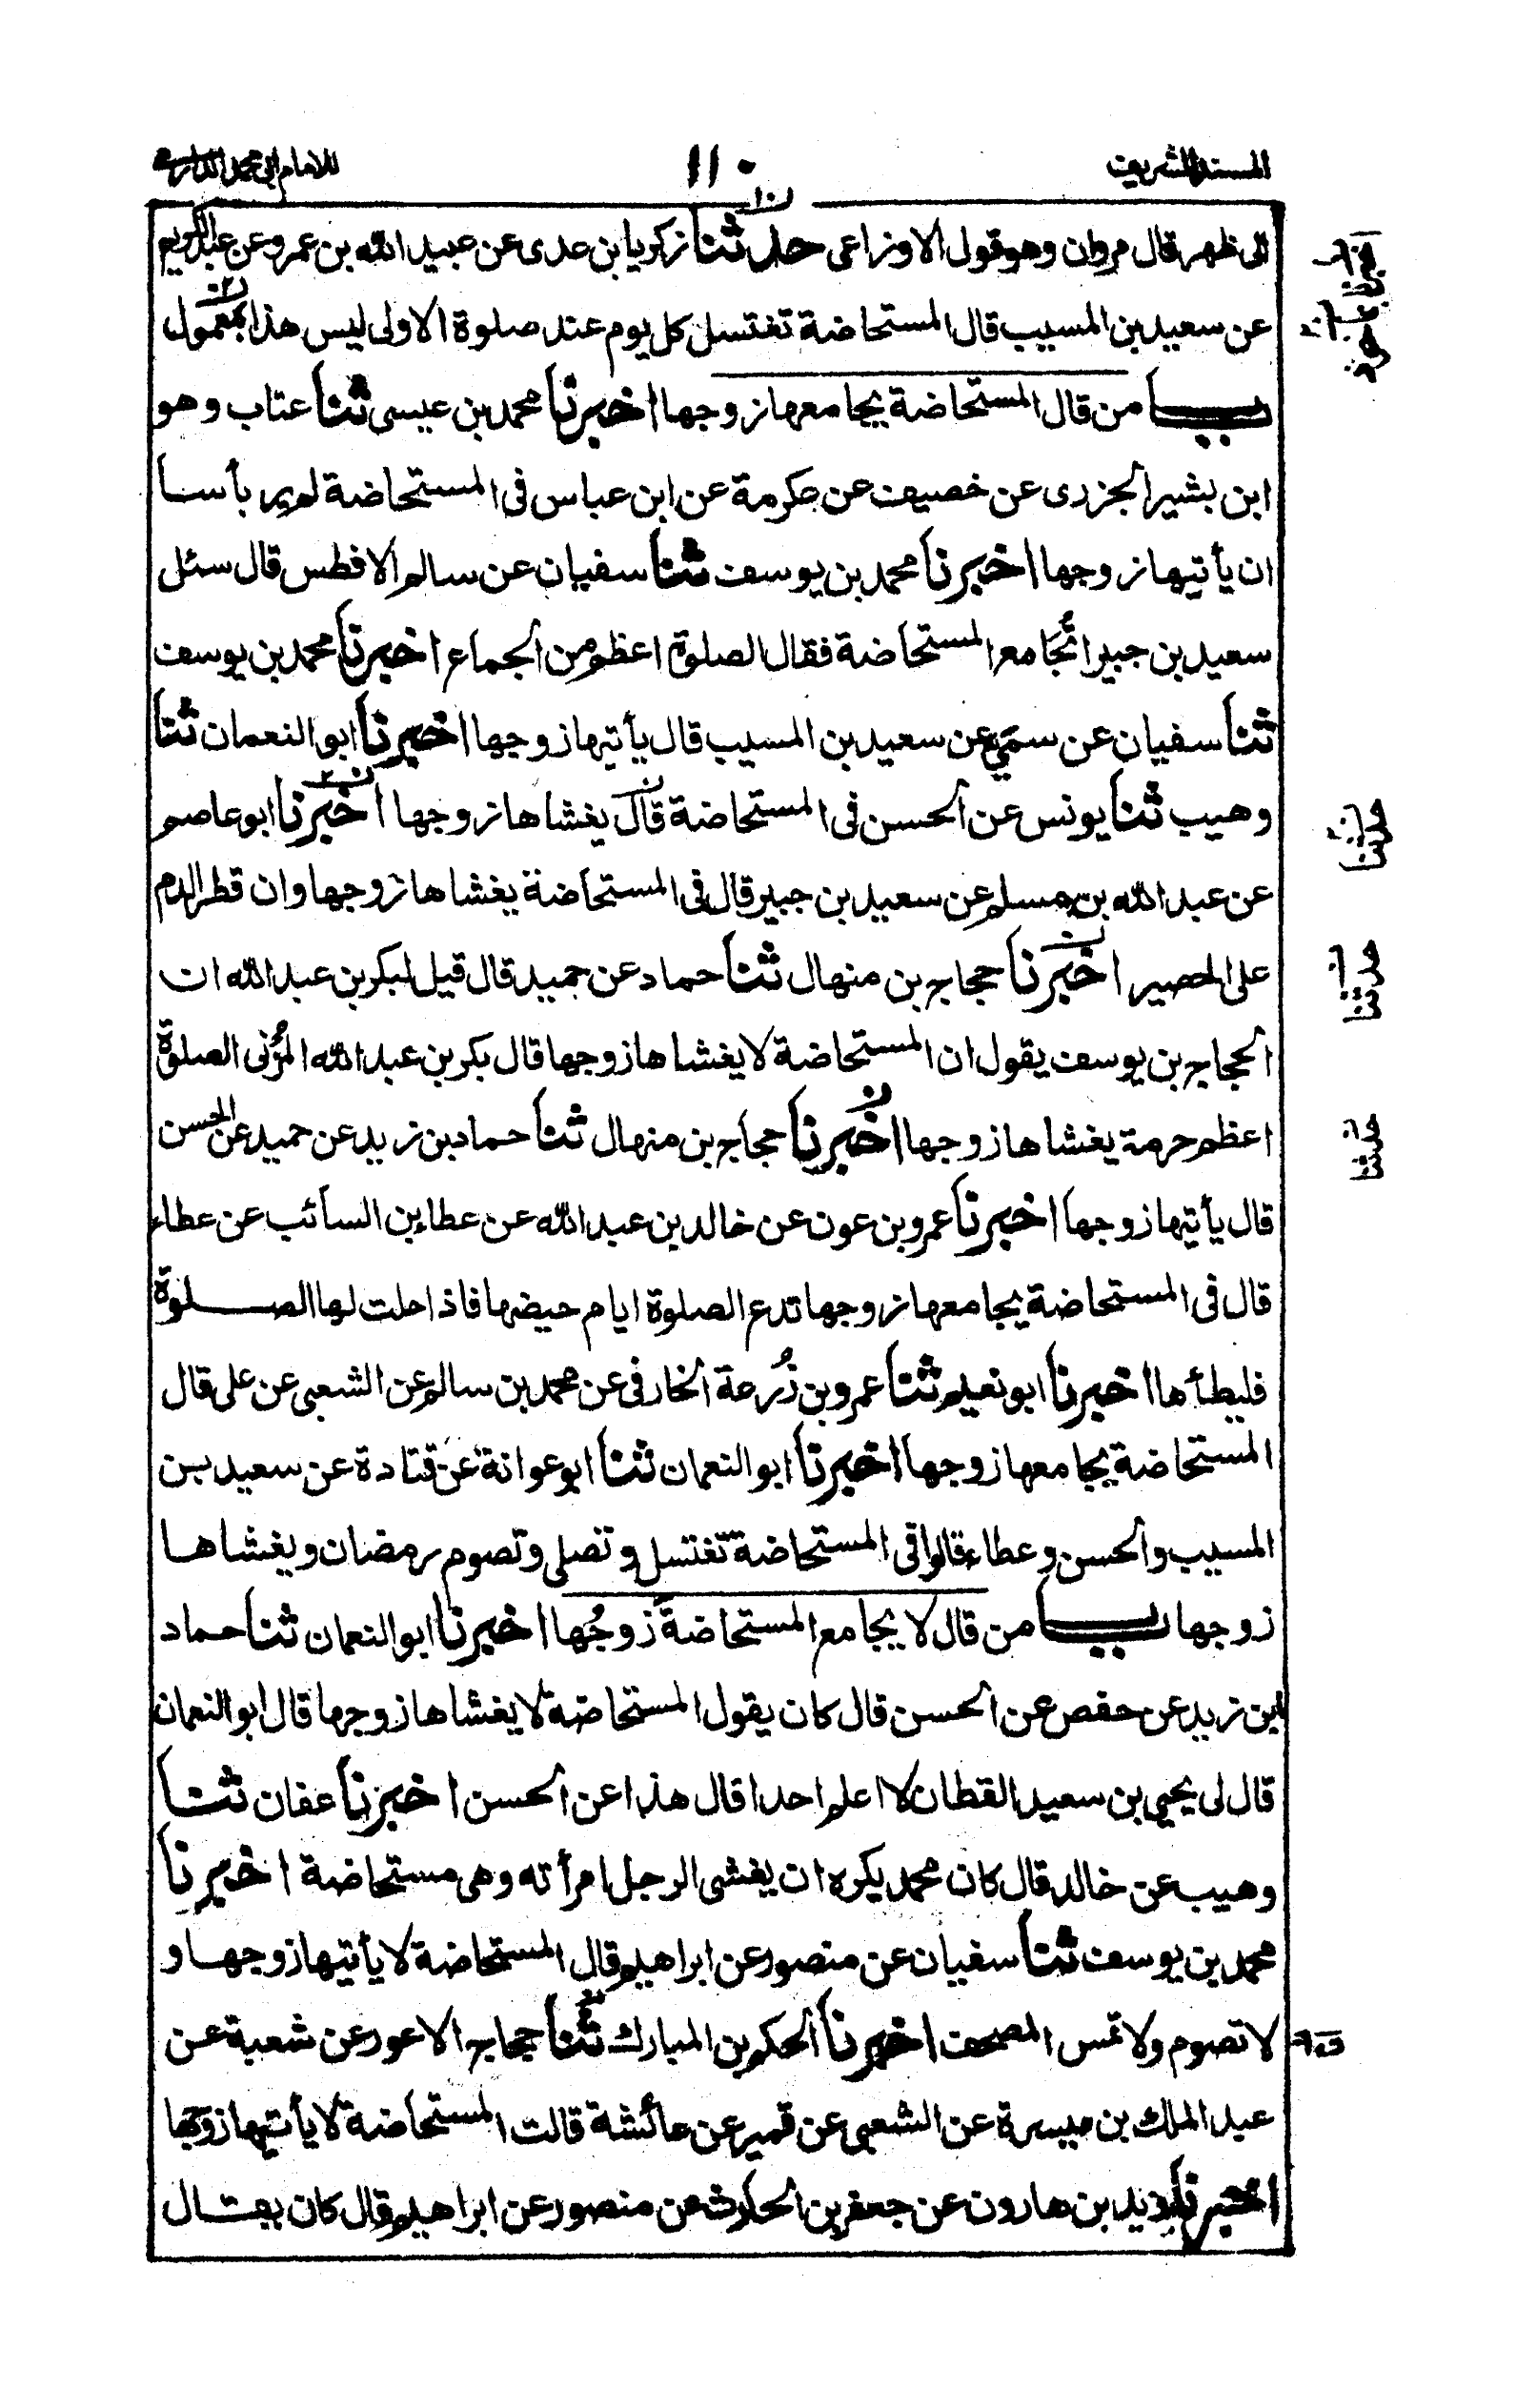 المسند الشريف
١١٠
للامام ابي محمد الدارمي
الى ظهر قال مروان وهو قول الاوزاعى حدثنا زكريا بن عدى عن عبيد الله بن عمرو عن عبد الكريم
عن سعيد بن المسيب قال المستحاضة تغتسل كل يوم عند صلوة الاولى ليس هذا بمعمول
باب من قال المستحاضة يجامعها زوجها اخبرنا محمد بن عيسى ثنا عتاب وهو
ابن بشير الجزرى عن خصيف عن عكرمة عن ابن عباس فى المستحاضة لم ير بأسا
ان يأتيها زوجها اخبرنا محمد بن يوسف ثنا سفيان عن سالم الافطس قال سئل
سعيد بن جبير اتجامع المستحاضة فقال الصلوة اعظم من الجماع اخبرنا محمد بن يوسف
ثنا سفيان عن سمي عن سعيد بن المسيب قال يأتيها زوجها اخبرنا ابو النعمان ثنا
وهيب ثنا يونس عن الحسن فى المستحاضة قال يغشاها زوجها اخبرنا ابو عاصم
عن عبد الله بن مسلم عن سعيد بن جبير قال فى المستحاضة يغشاها زوجها وان قطر الدم
على الحصير اخبرنا حجاج بن منهال ثنا حماد عن حميد قال قيل لبكر بن عبد الله ان
الحجاج بن يوسف يقول ان المستحاضة لا يغشاها زوجها قال بكر بن عبد الله المزنى الصلوة
اعظم حرمة يغشاها زوجها اخبرنا حجاج بن منهال ثنا حماد بن زيد عن حميد عن الحسن
قال يأتيها زوجها اخبرنا عمرو بن عون عن خالد بن عبد الله عن عطاء بن السائب عن عطاء
قال فى المستحاضة يجامعها زوجها تدع الصلوة ايام حيضها فاذا حلت لها الصلوة
فليطأها اخبرنا ابو نعيم ثنا عمرو بن زرعة الخارفى عن محمد بن سالم عن الشعبى عن على قال
المستحاضة يجامعها زوجها اخبرنا ابو النعمان ثنا ابو عوانة عن قتادة عن سعيد بن
المسيب والحسن وعطاء قالوا فى المستحاضة تغتسل وتصلى وتصوم رمضان ويغشاها
زوجها باب من قال لا يجامع المستحاضة زوجها اخبرنا ابو النعمان ثنا حماد
ابن زيد عن حفص عن الحسن قال كان يقول المستحاضة لا يغشاها زوجها قال ابو النعمان
قال لى يحيى بن سعيد القطان لا اعلم احدا قال هذا عن الحسن اخبرنا عفان ثنا
وهيب عن خالد قال كان محمد يكره ان يغشى الرجل امرأته وهى مستحاضة اخبرنا
محمد بن يوسف ثنا سفيان عن منصور عن ابراهيم قال المستحاضة لا يأتيها زوجها و
لا تصوم ولا تمس المصحف اخبرنا الحكم بن المبارك ثنا حجاج الاعور عن شعبة عن
عبد الملك بن ميسرة عن الشعبى عن قمير عن عائشة قالت المستحاضة لا يأتيها زوجها
اخبرنا يزيد بن هارون عن جعفر بن الحارث عن منصور عن ابراهيم قال كان يقال
حدثنا
حدثنا
حدثنا